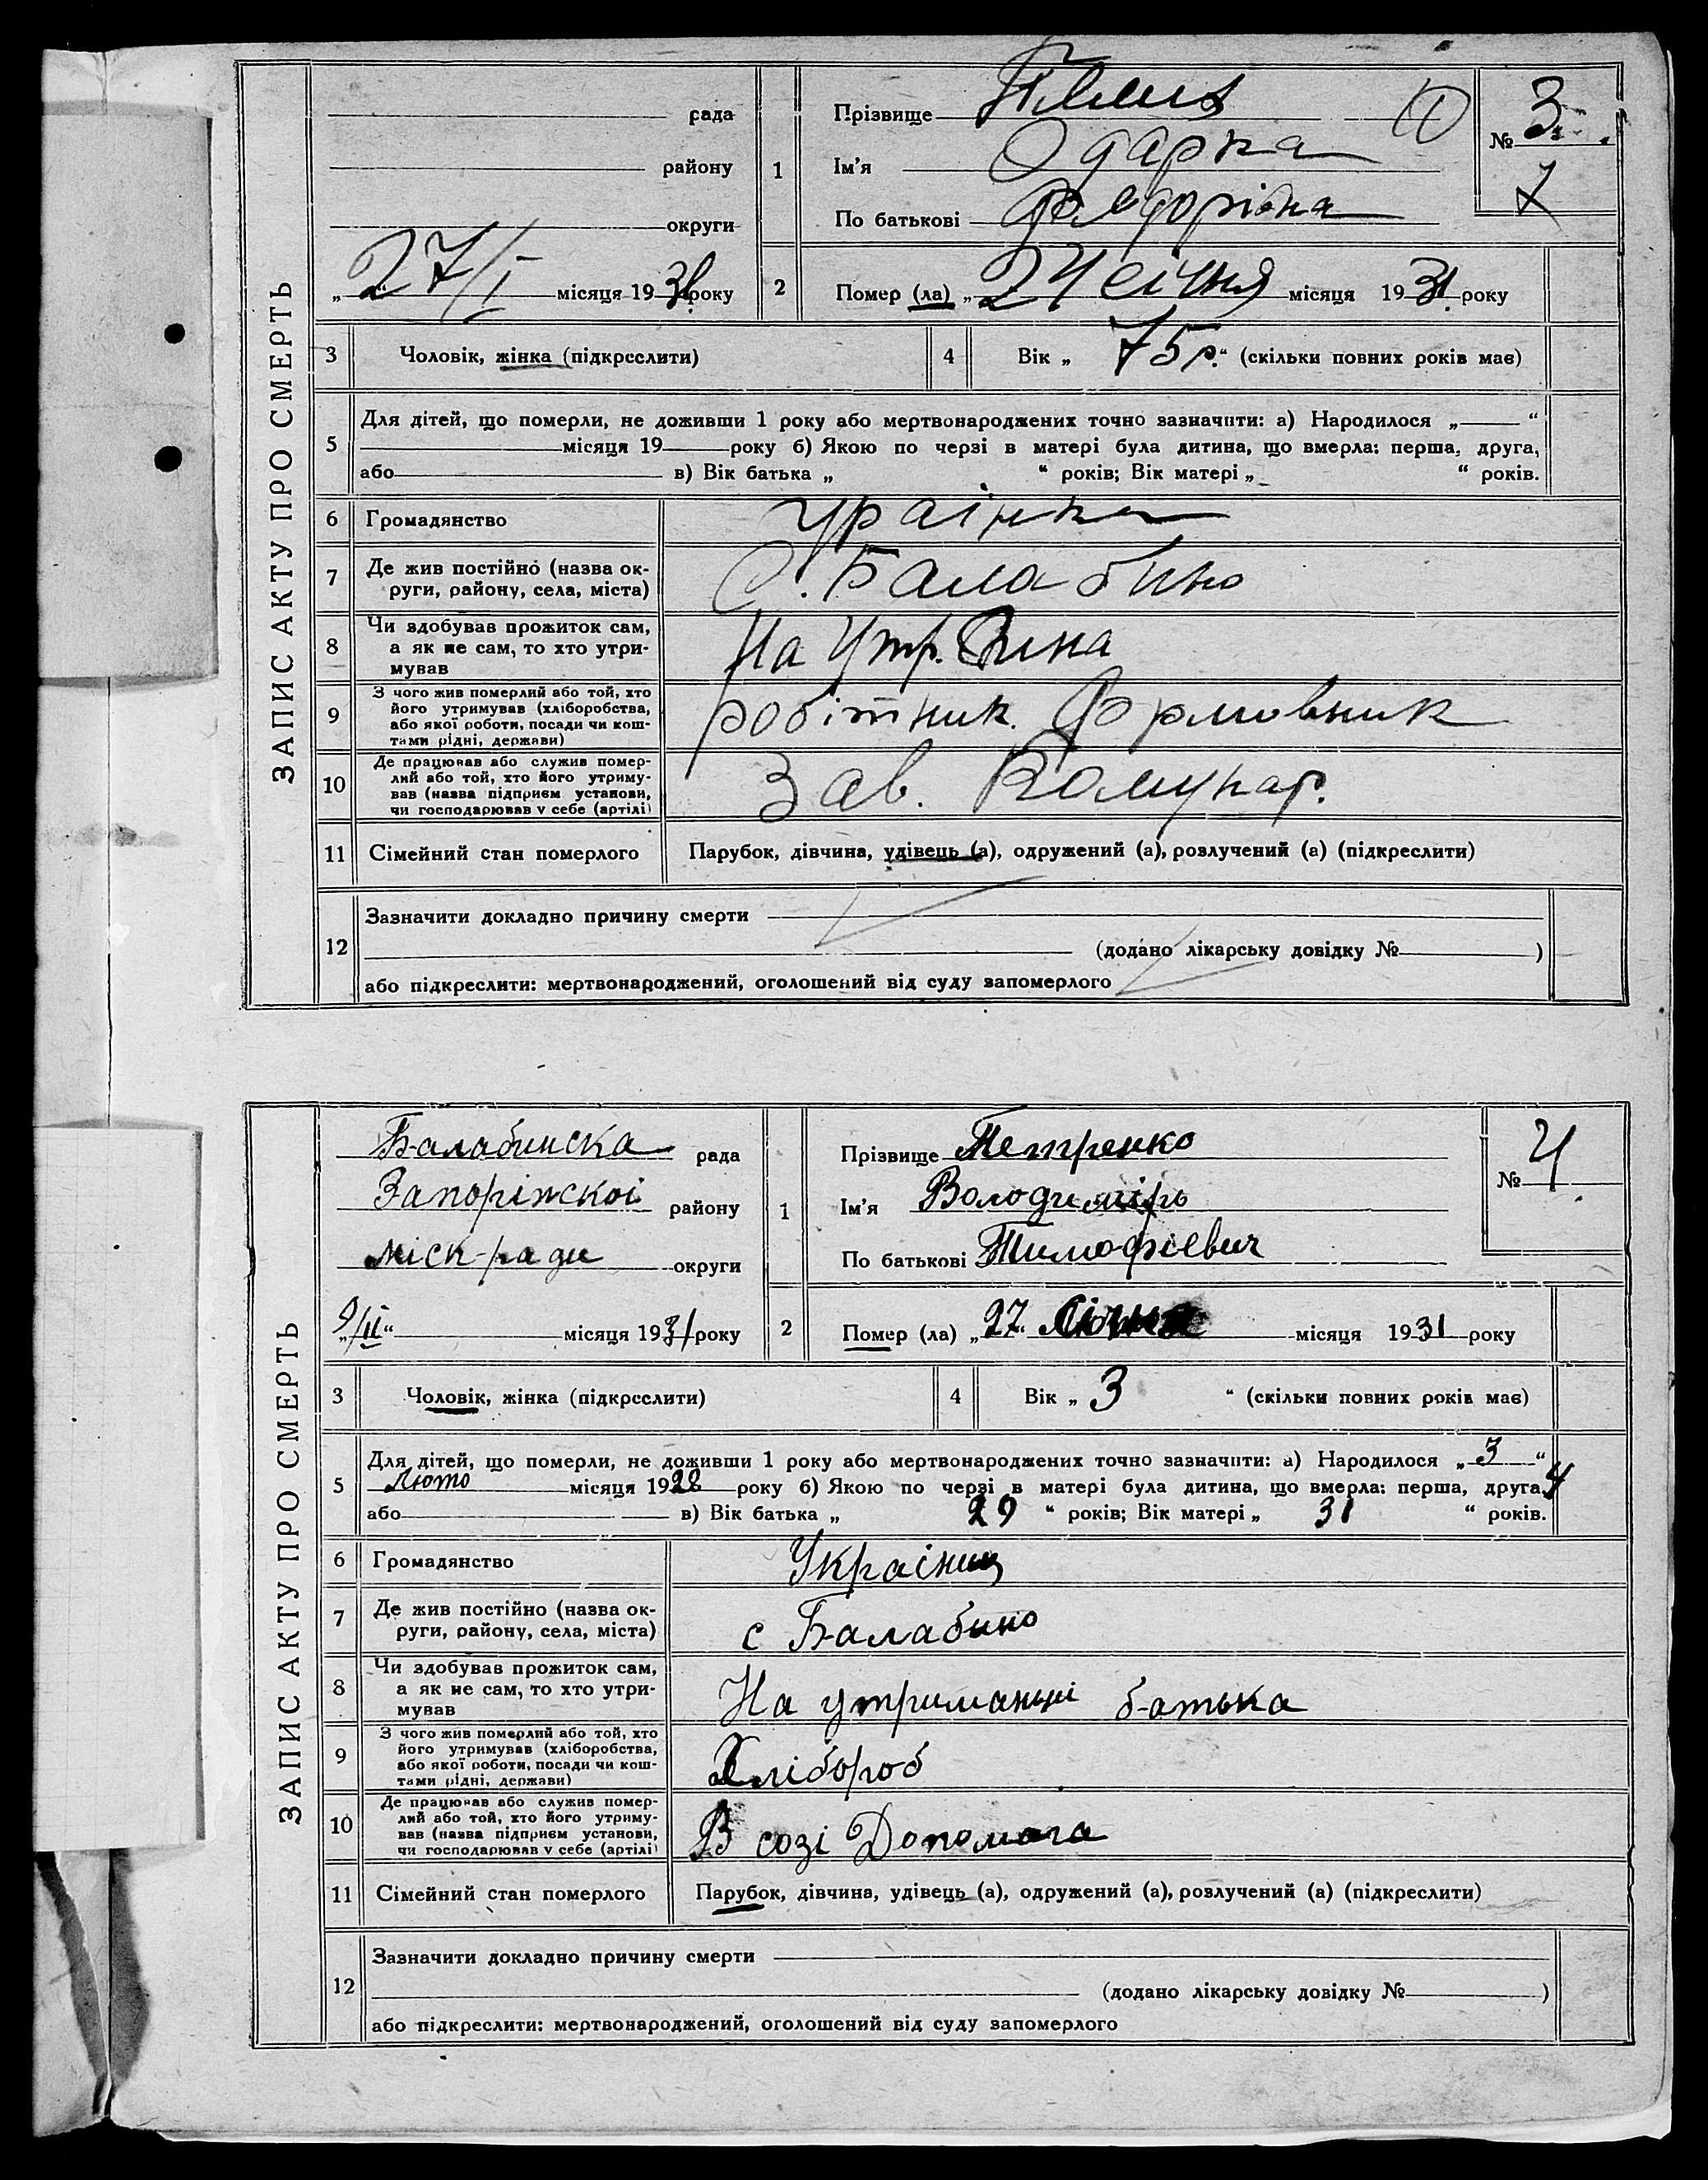 ЗАПИС АКТУ ПРО СМЕРТЬ
рада
району
округи
27/I місяця 1931 року
1
Прізвище
Ім'я Одарка
По батькові Федорівна
№ 3
7
2 Помер (ла) „24 січня місяця 1931 року
3 Чоловік, жінка (підкреслити)
4 Вік „ 75 р.“ (скільки повних років має)
5 Для дітей, що померли, не доживши 1 року або мертвонароджених точно зазначити: а) Народилося „ “
місяця 19 року б) Якою по черзі в матері була дитина, що вмерла: перша, друга,
або в) Вік батька „ “ років; Вік матері „ “ років.
6 Громадянство Украінка
7 Де жив постійно (назва ок-
руги, району, села, міста) С. Балабино
8 Чи здобував прожиток сам,
а як не сам, то хто утри-
мував На утр. Сина
9 З чого жив померлий або той, хто
його утримував (хліборобства,
або якої роботи, посади чи кош-
тами рідні, держави) робітник. Формовник
10 Де працював або служив помер-
лий або той, хто його утриму-
вав (назва підприєм установи,
чи господарював у себе (артілі) Зав. Комунар.
11 Сімейний стан померлого Парубок, дівчина, удівець (а), одружений (а), розлучений (а) (підкреслити)
12 Зазначити докладно причину смерти
(додано лікарську довідку № )
або підкреслити: мертвонароджений, оголошений від суду запомерлого
ЗАПИС АКТУ ПРО СМЕРТЬ
Балабинска рада
Запоріжскоі району
міск-ради округи
9/II“ місяця 1931 року
1
Прізвище Петренко
Ім'я Володимірь
По батькові Тимофіевич
№ 4
2 Помер (ла) „27“ Січня місяця 1931 року
3 Чоловік, жінка (підкреслити)
4 Вік „ 3 “ (скільки повних років має)
5 Для дітей, що померли, не доживши 1 року або мертвонароджених точно зазначити: а) Народилося „ 3 “
Люто місяця 1928 року б) Якою по черзі в матері була дитина, що вмерла: перша, друга, 4
або в) Вік батька „ 29 “ років; Вік матері „ 31 “ років.
6 Громадянство Украінец
7 Де жив постійно (назва ок-
руги, району, села, міста) с Балабино
8 Чи здобував прожиток сам,
а як не сам, то хто утри-
мував На утриманні батька
9 З чого жив померлий або той, хто
його утримував (хліборобства,
або якої роботи, посади чи кош-
тами рідні, держави) Хлібороб
10 Де працював або служив помер-
лий або той, хто його утриму-
вав (назва підприєм установи,
чи господарював у себе (артілі) В созі Допомога
11 Сімейний стан померлого Парубок, дівчина, удівець (а), одружений (а), розлучений (а) (підкреслити)
12 Зазначити докладно причину смерти
(додано лікарську довідку № )
або підкреслити: мертвонароджений, оголошений від суду запомерлого